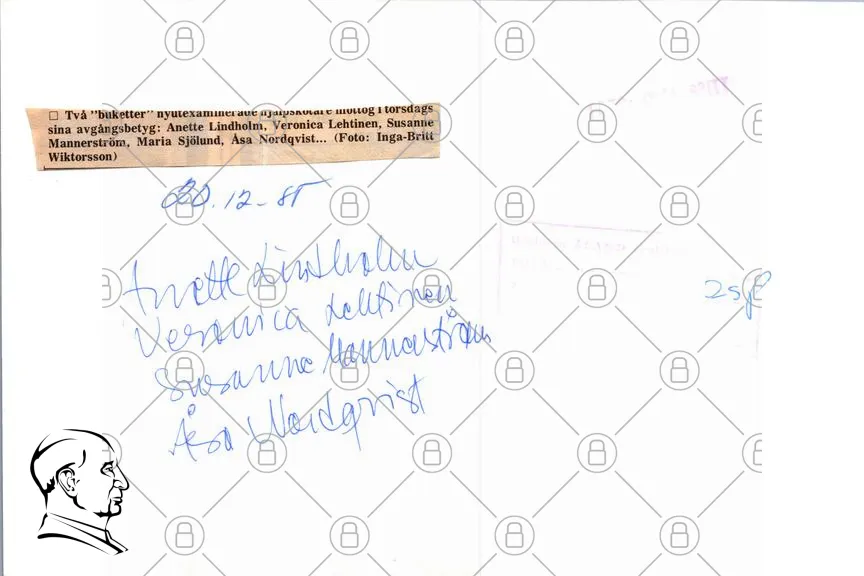 □ Två "buketter" nyutexaminerade hjälpskötare mottog i torsdags
sina avgångsbetyg: Anette Lindholm, Veronica Lehtinen, Susanne
Mannerström, Maria Sjölund, Åsa Nordqvist... (Foto: Inga-Britt
Wiktorsson)
20.12-85
Anette Lindholm
Veronica Lehtinen
Susanne Mannerström
Åsa Nordqvist